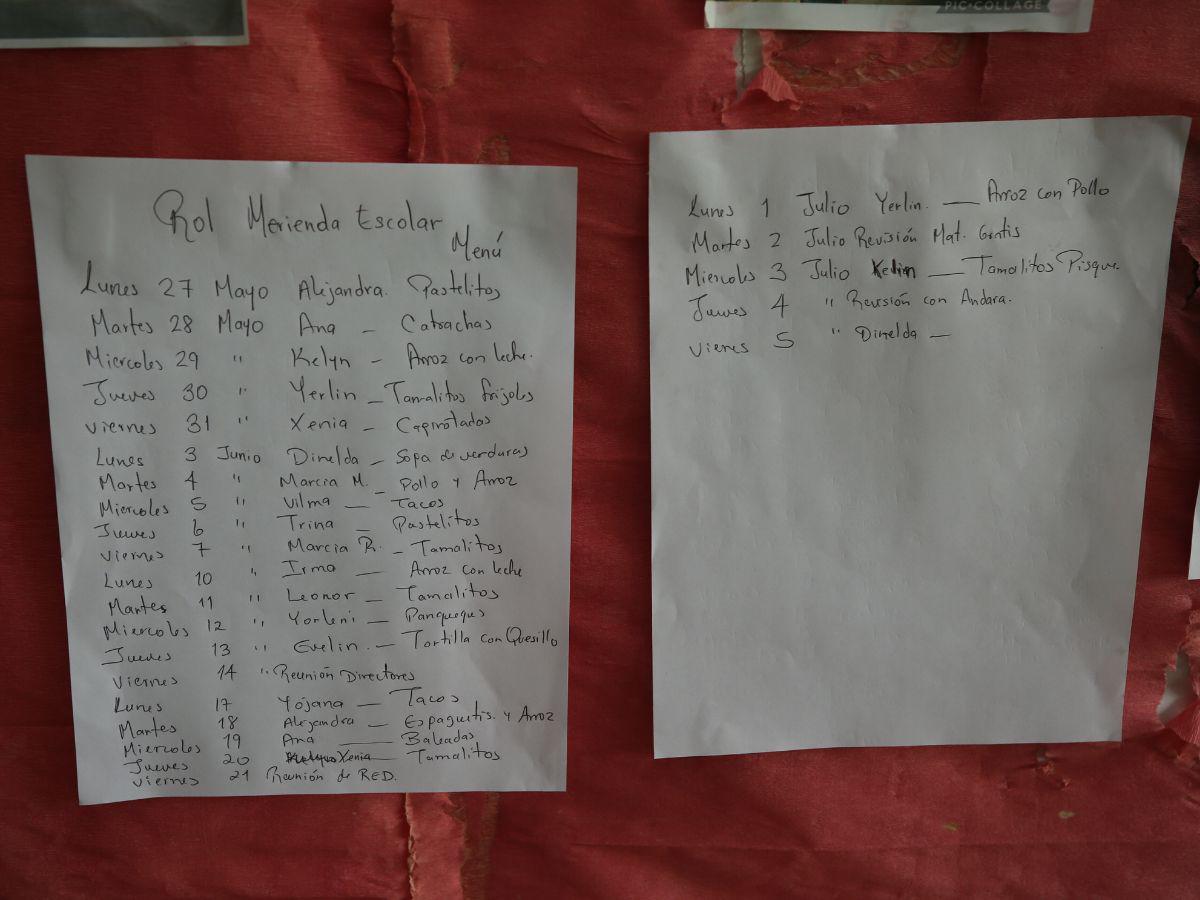 PIC•COLLAGE
Rol Merienda Escolar
Menú
Lunes 27 Mayo Alejandra. Pastelitos
Martes 28 Mayo Ana – Catrachas
Miercoles 29 " Kelyn – Arroz con leche.
Jueves 30 " Yerlin – Tamalitos frijoles
viernes 31 " Xenia – Capirotadas
Lunes 3 Junio Dinelda – Sopa de verduras
Martes 4 " Marcia M. – Pollo y Arroz
Miercoles 5 " Vilma — Tacos
Jueves 6 " Trina – Pastelitos
viernes 7 " Marcia R. – Tamalitos
Lunes 10 " Irma — Arroz con leche
Martes 11 " Leonor – Tamalitos
Miercoles 12 " Yorleni – Panqueques
Jueves 13 " Evelin. – Tortilla con Quesillo
viernes 14 " Reunión Directores
Lunes 17 Yojana — Tacos
Martes 18 Alejandra — Espaguetis. y Arroz
Miercoles 19 Ana — Baleadas
Jueves 20 Xenia — Tamalitos
viernes 21 Reunión de RED.
Lunes 1 Julio Yerlin. — Arroz con Pollo
Martes 2 Julio Revisión Mat. Gratis
Miercoles 3 Julio Kelin — Tamalitos Pisque.
Jueves 4 " Revisión con Andara.
vieres 5 " Dinelda —